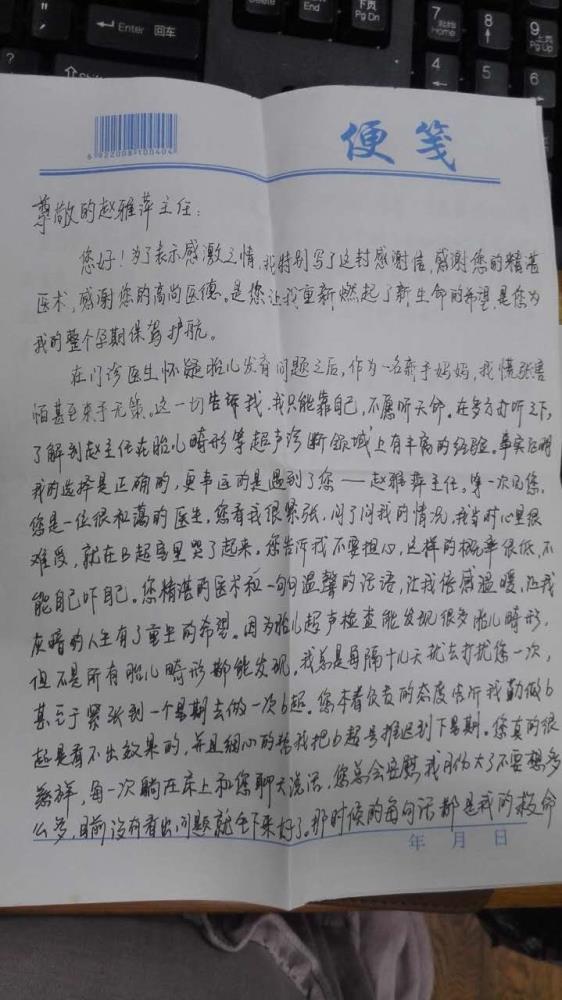 Enter 回车
Delete
End
下页
PgDn
7
Home
8
9
上页
PgUp
4
5
6
1
6 922008 100404
便笺
尊敬的赵雅萍主任:
您好!为了表示感激之情,我特别写了这封感谢信,感谢您的精湛
医术,感谢您的高尚医德。是您让我重新燃起了新生命的希望,是您为
我的整个孕期保驾护航。
在门诊医生怀疑胎儿发育问题之后,作为一名新手妈妈,我慌张害
怕甚至束手无策。这一切告诉我,我只能靠自己,不愿听天命。在多方打听之下,
了解到赵主任在胎儿畸形等超声诊断领域上有丰富的经验。事实证明
我的选择是正确的,更幸运的是遇到了您——赵雅萍主任。第一次见您,
您是一位很和蔼的医生,您看我很紧张,问了问我的情况,我当时心里很
难受,就在B超房里哭了起来。您告诉我不要担心,这样的概率很低,不
能自己吓自己。您精湛的医术和一句句温馨的话语,让我倍感温暖,让我
灰暗的人生有了重生的希望。因为胎儿超声检查能发现很多胎儿畸形,
但不是所有胎儿畸形都能发现。我总是每隔十几天就去打扰您一次,
甚至于紧张到一个星期去做一次b超。您本着负责的态度告诉我勤做b
超是看不出效果的,并且细心的帮我把b超号推迟到下星期。您真的很
慈祥,每一次躺在床上和您聊天说话,您总会安慰我月份大了不要想多
么多,目前没有看出问题就生下来好了。那时候的每句话都是我的救命
年 月 日